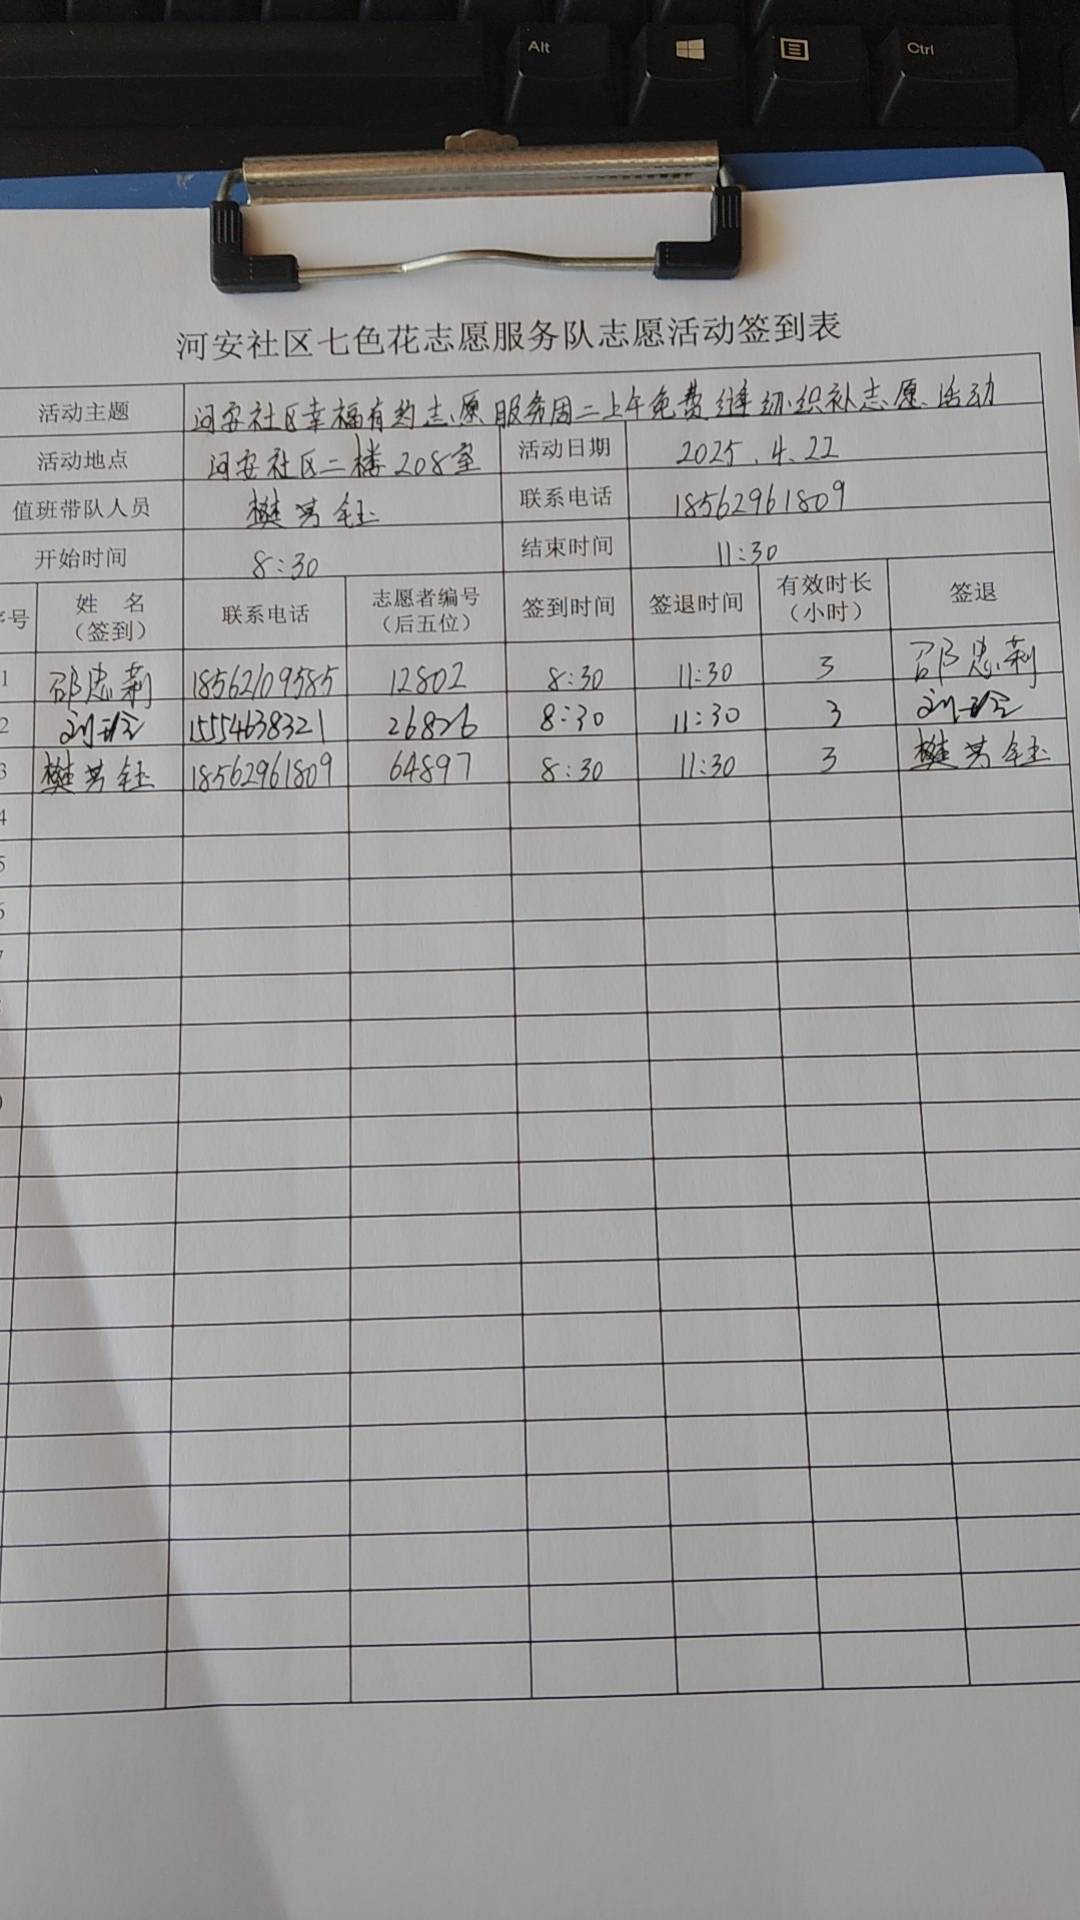 Alt
Ctrl
河安社区七色花志愿服务队志愿活动签到表
活动主题 河安社区幸福有约志愿服务周二上午免费缝纫织补志愿活动
活动地点 河安社区二楼208室 活动日期 2025.4.22
值班带队人员 樊芳钰 联系电话 18562961809
开始时间 8:30 结束时间 11:30
序号 姓 名（签到） 联系电话 志愿者编号（后五位） 签到时间 签退时间 有效时长（小时） 签退
1 邵忠莉 18562109585 12802 8:30 11:30 3 邵忠莉
2 刘玲 15554638321 26826 8:30 11:30 3 刘玲
3 樊芳钰 18562961809 64897 8:30 11:30 3 樊芳钰
4
5
6
7